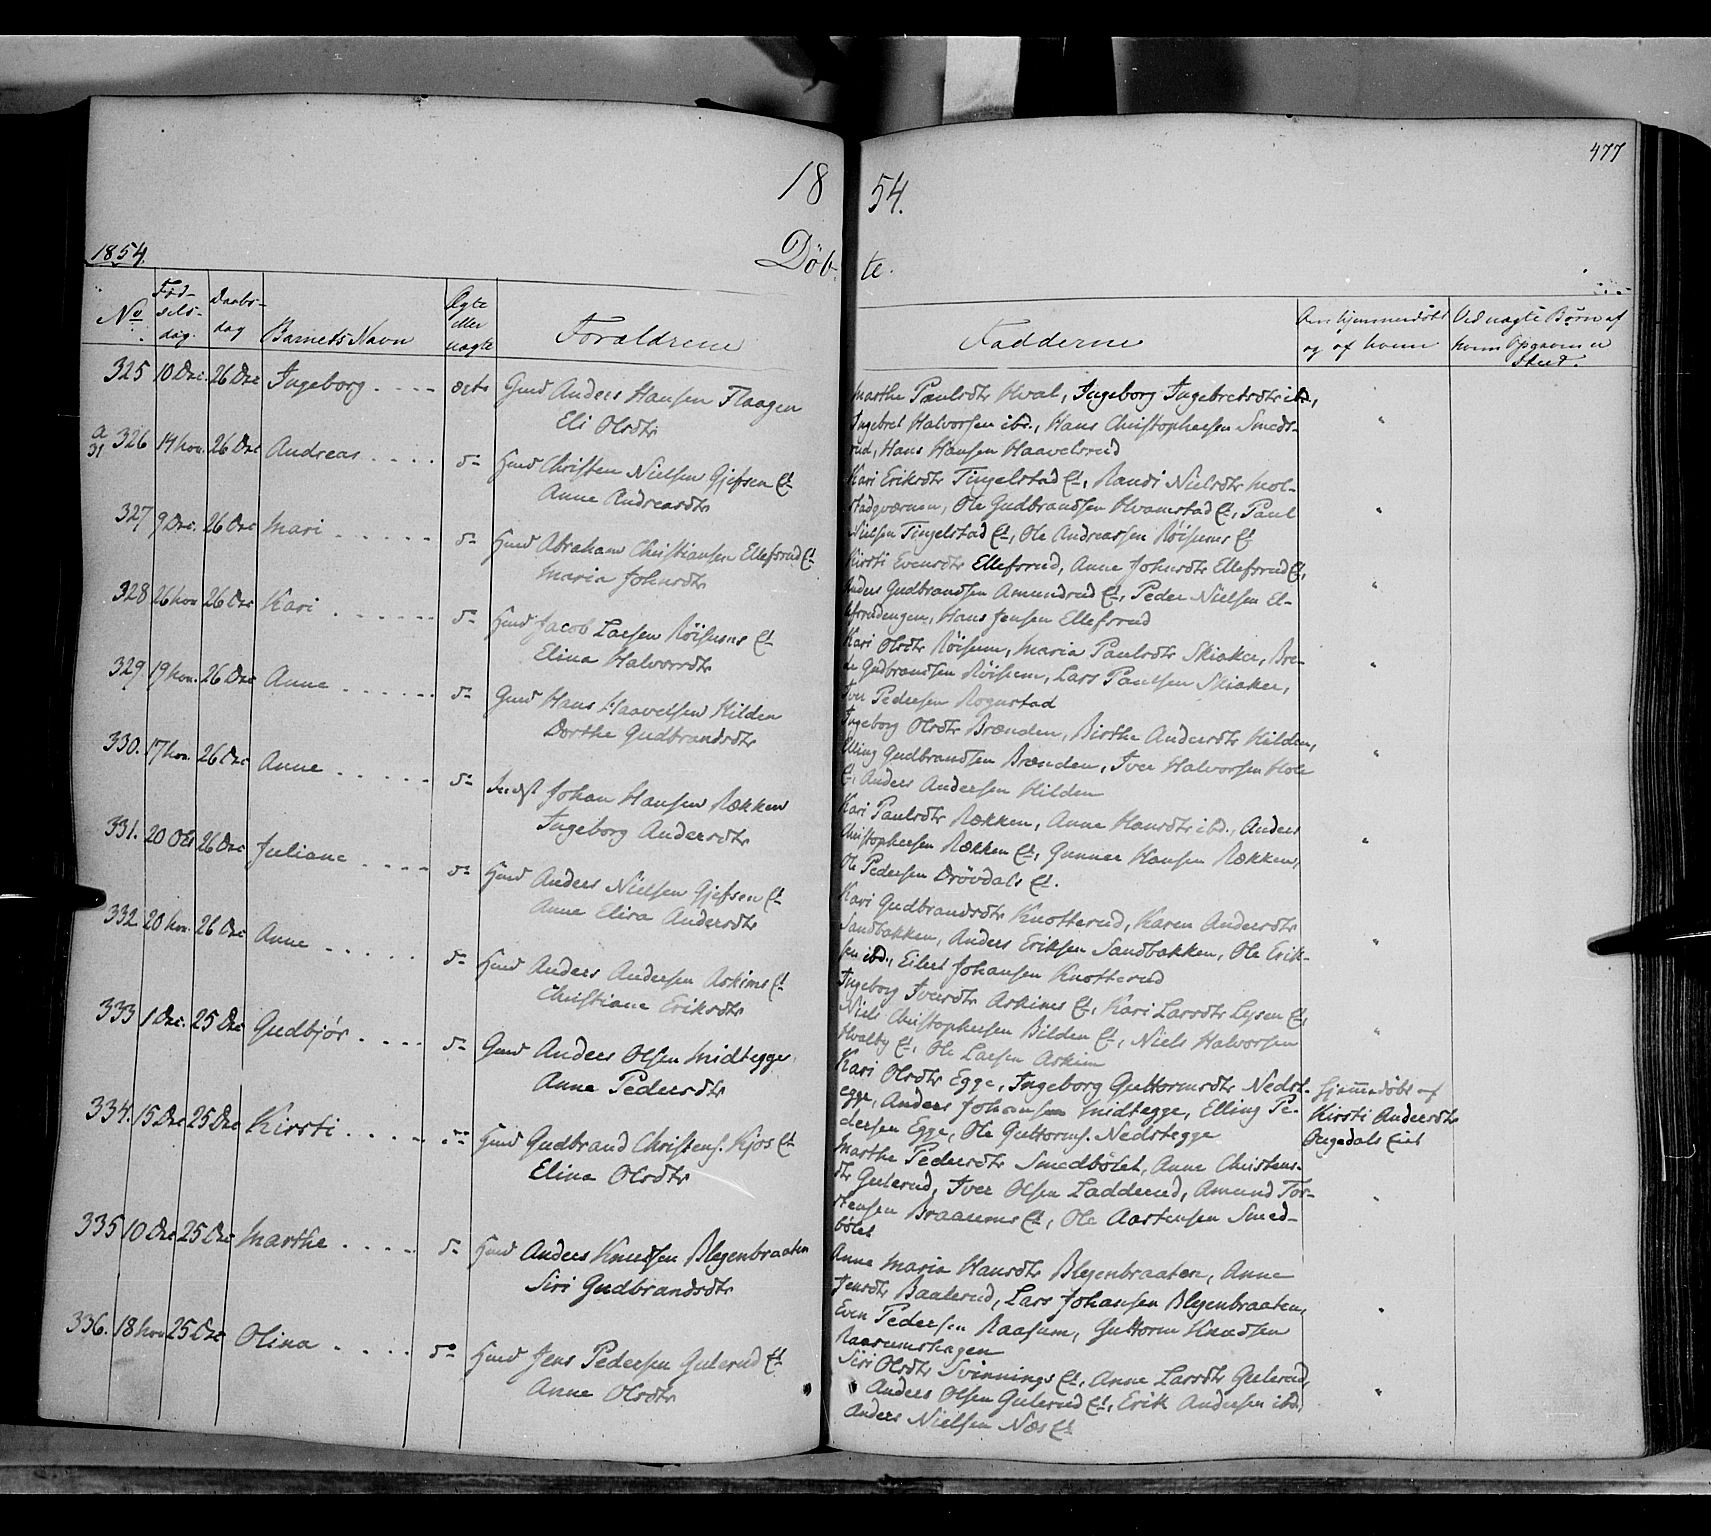 477
18 54.
1854.
Döb- te.
No
Fød-
sels-
dag.
Daabs-
dag
Barnets Navn
Ægte
eller
uægte
Forældrene
Fadderne
Om hjemmedøbt
og af hvem
Ved uægte Børn af
hvem Opgaven er
skeet.
325 10 Dec. 26 Dec Ingeborg . . . . ægte Gmd Anders Hansen Flaagen
Eli Olsdtr
Marthe Paulsdtr Hval, Ingeborg Ingebretsdtr ibd.,
Ingebret Halvorsen ibd., Hans Christophersen Smeds-
rud, Hans Hansen Haavelsrud
a
31 326 14 Nov. 26 Dec Andreas . . . . do Huusd Christen Nielsen Gjefsen Et
Anne Andreasdtr
Kari Eriksdtr Tingelstad Et, Randi Nielsdtr Mol-
stadqværnen, Ole Gudbrandsen Hvamstad Et, Paul
Nielsen Tingelstad Et, Ole Andreassen Röisums Et
327 9 Dec. 26 Dec Mari . . . . . do Huusd Abraham Christiansen Ellefsrud Et
Maria Johnsdtr
Kirsti Evensdtr Ellefsrud, Anne Johnsdtr Ellefsrud Et,
Anders Gudbrandsen Amundrud Et, Peder Nielsen El-
lefsrudengen, Hans Jensen Ellefsrud
328 26 Nov 26 Dec Kari . . . . . do Huusd Jacob Larsen Röisums Et
Elina Halvorsdtr
Kari Olsdtr Röisum, Maria Paulsdtr Skiaker, Bre-
de Gudbrandsen Röisum, Lars Paulsen Skiaker,
Iver Pedersen Rognstad
329. 19 Nov. 26 Dec Anne . . . . . do Gmd Hans Haavelsen Hilden
Dorthe Gudbrandsdtr
Ingeborg Olsdtr Brænden, Birthe Andersdtr Hilden,
Elling Gudbrandsen Brænden, Iver Halvorsen Hole
Et, Anders Andersen Hilden
330. 17 Nov. 26 Dec Anne . . . . . do Johan Hansen Rækken
Ingeborg Andersdtr
Kari Paulsdtr Rækken, Anne Hansdtr ibd., Anders
Christophersen Rækken Et, Gunner Hansen Rækken,
Ole Pedersen Drövdals Et.
331. 20 Oct 26 Dec Juliane . . . . do Huusd Anders Nielsen Gjefsen Et
Anne Elisa Andersdtr
Kari Gudbrandsdtr Knotterud, Karen Andersdtr
Sandbakken, Anders Eriksen Sandbakken, Ole Erik-
sen ibd., Eilert Johansen Knotterud
332 20 Nov. 26 Dec Anne . . . . . do Huusd Anders Andersen Askims Et
Christiane Eriksdtr
Ingeborg Iversdtr Askims Et, Kari Larsdtr Lysen Et,
Niels Christophersen Bilden Et, Niels Halvorsen
Hvalby Et, Ole Larsen Askim
333 1 Dec. 25 Dec Gudbjør . . . . do Gmd Anders Olsen Midtegge,
Anne Pedersdtr
Kari Olsdtr Egge, Ingeborg Guttormsdtr Nedst-
egge, Anders Johansen Midtegge, Elling Pe-
dersen Egge, Ole Guttorms. Nedstegge
Hjemmedöbt af
Kirsti Andersdtr
Eiet
334. 15 Dec 25 Dec Kirsti . . . . . do Huusd Gudbrand Christens. Kjos Et
Elina Olsdtr
Marthe Pedersdtr Smedbölet, Anne Christens-
dtr Gulerud, Iver Olsen Ladderud, Amund Tor-
stensen Braarums Et, Ole Aastensen Smed-
bölet
335 10 Dec 25 Dec Marthe . . . . do Huusd Anders Knudsen Blegenbraaten
Siri Gudbrandsdtr
Anne Maria Hansdtr Blegenbraaten, Anne
Jensdtr Baalerud, Lars Johansen Blegenbraaten,
Even Pedersen Raasum, Guttorm Knudsen
Raasumshagen
336. 18 Nov 25 Dec Olina . . . . do Huusd Jens Pedersen Gulerud Et
Anne Olsdtr
Siri Olsdtr Svinnings Et, Anne Larsdtr Gulerud,
Anders Olsen Gulerud Et, Erik Andersen ibd.,
Anders Nielsen Næs Et